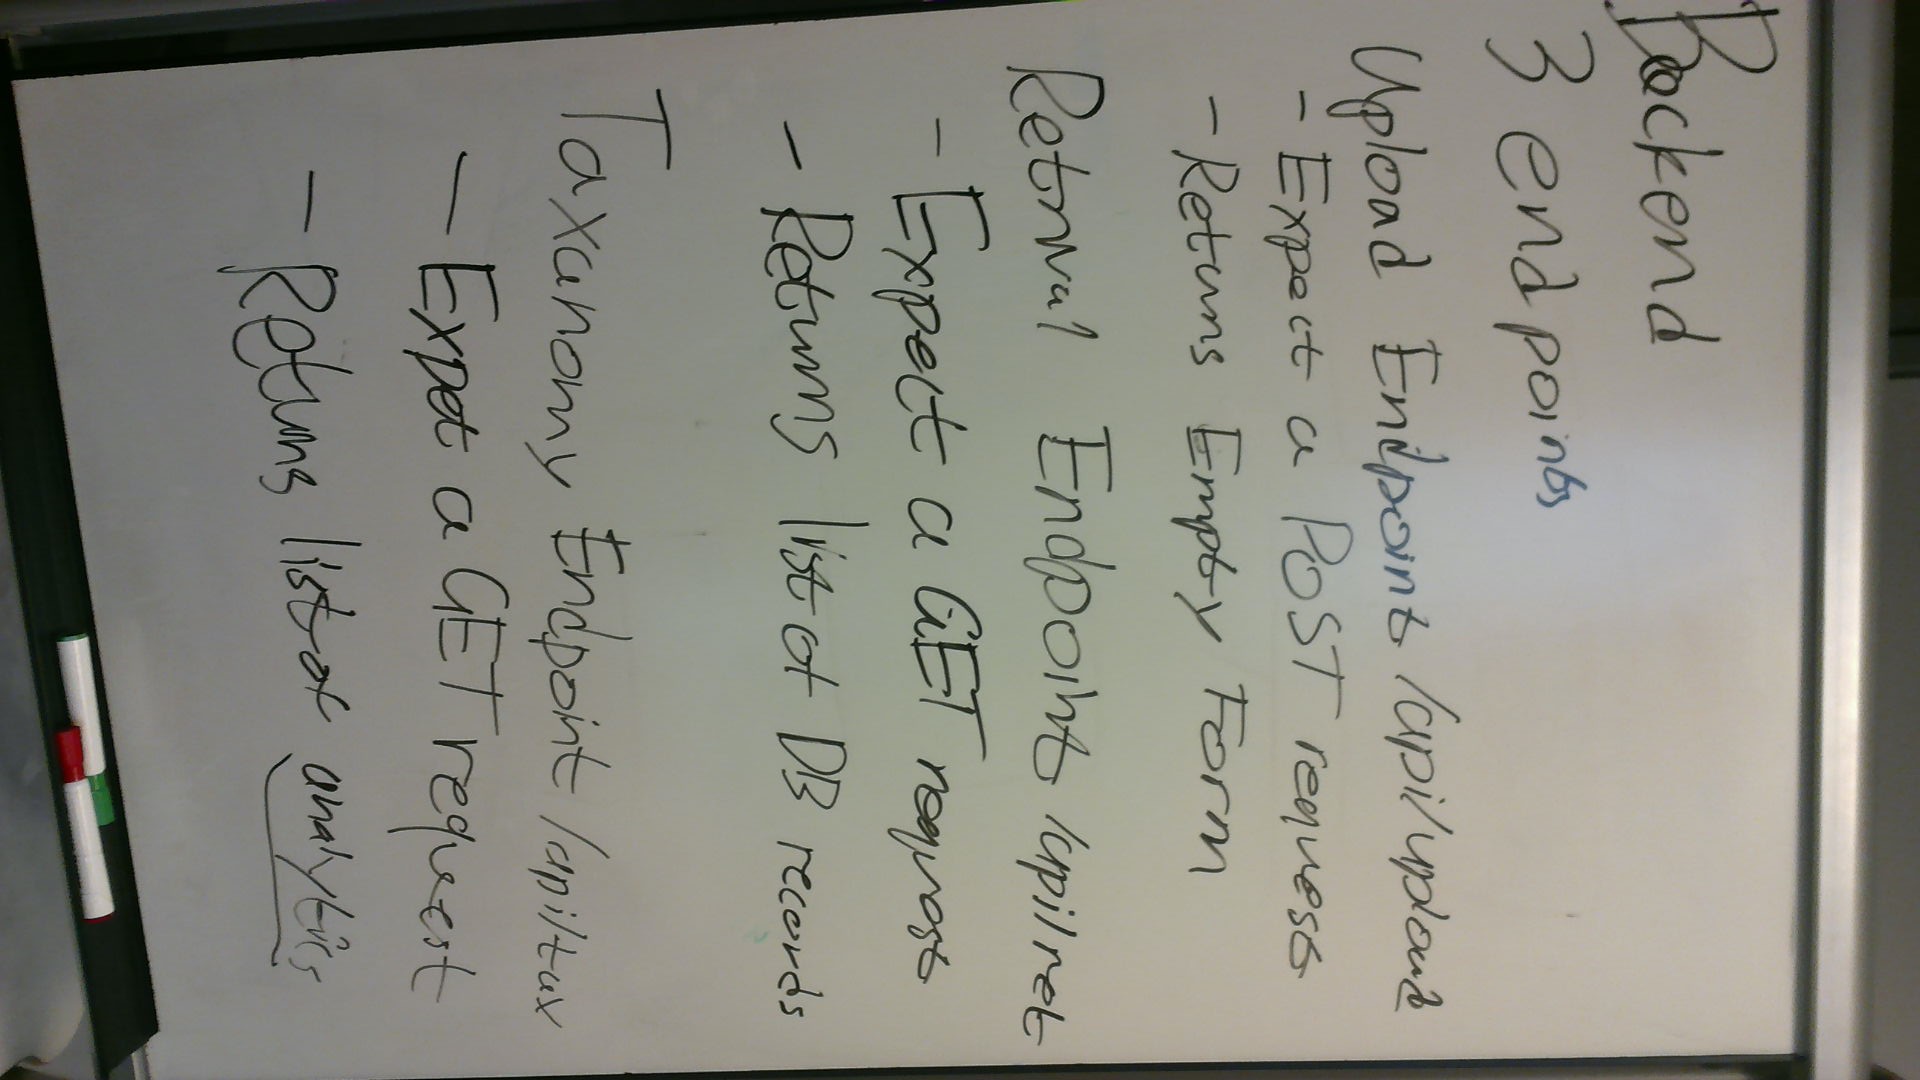 Backend
3 endpoints
Upload Endpoint /api/upload
- Expect a POST request
- Returns Empty Form
Retrival Endpoint /api/ret
- Expect a GET request
- Returns list of DB records
Taxanomy Endpoint /api/tax
- Expet a GET request
- Returns list of analytics